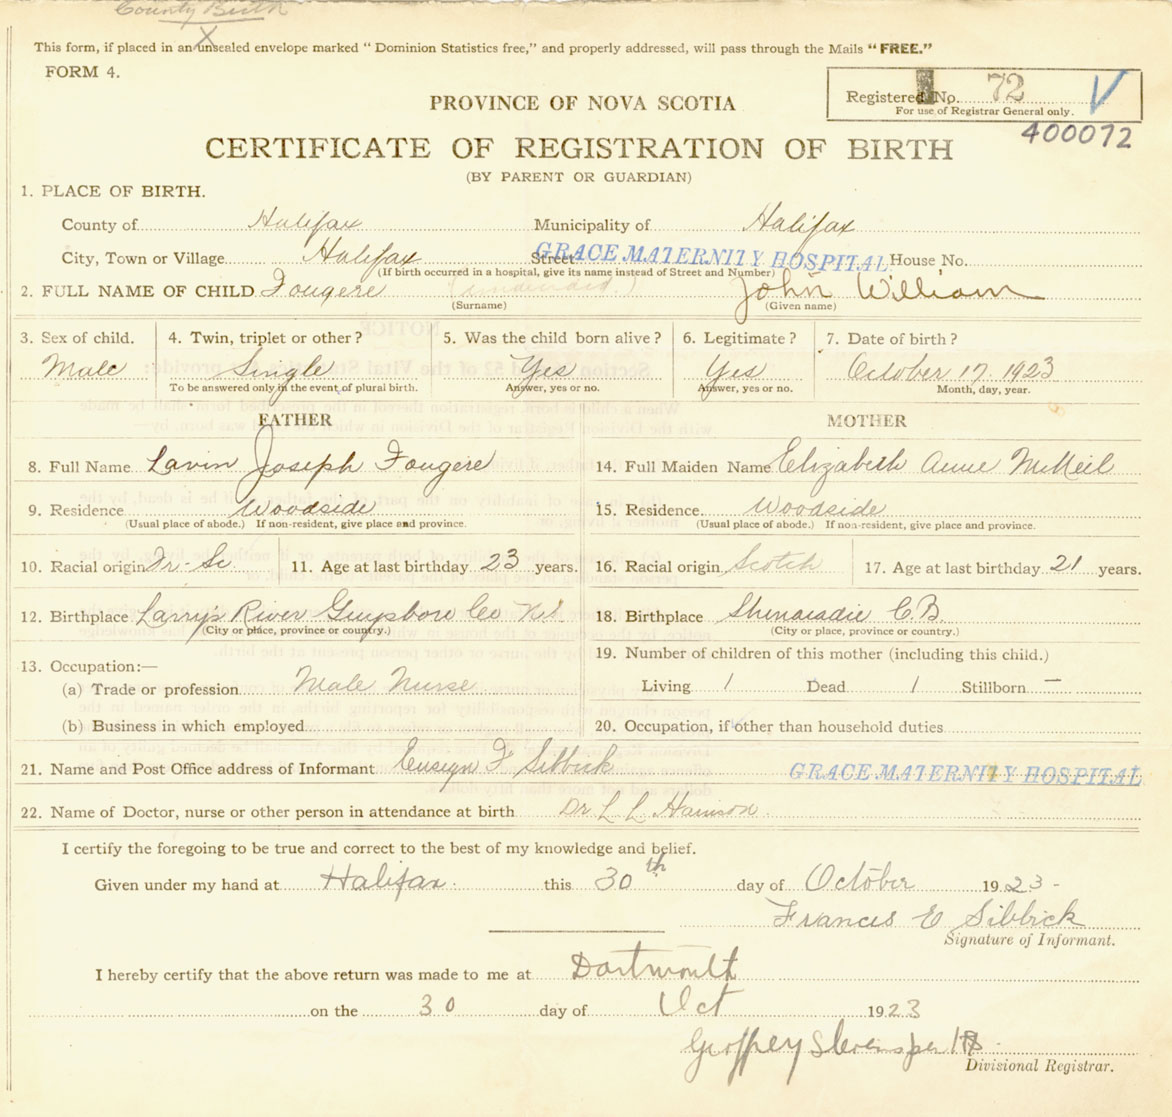 County Birth
This form, if placed in an unsealed envelope marked "Dominion Statistics free," and properly addressed, will pass through the Mails "FREE."
FORM 4.
Registered No. 72 V
For use of Registrar General only.
PROVINCE OF NOVA SCOTIA
400072
CERTIFICATE OF REGISTRATION OF BIRTH
(BY PARENT OR GUARDIAN)
1. PLACE OF BIRTH.
County of Halifax Municipality of Halifax
City, Town or Village Halifax Street GRACE MATERNITY HOSPITAL House No.
(If birth occurred in a hospital, give its name instead of Street and Number)
2. FULL NAME OF CHILD Fougere (undecided.) John William
(Surname) (Given name)
3. Sex of child. 4. Twin, triplet or other? 5. Was the child born alive? 6. Legitimate? 7. Date of birth?
Male Single Yes Yes October 17. 1923
To be answered only in the event of plural birth. Answer, yes or no. Answer, yes or no. Month, day, year.
FATHER MOTHER
8. Full Name Lavin Joseph Fougere 14. Full Maiden Name Elizabeth Anne McNeil
9. Residence Woodside 15. Residence. Woodside
(Usual place of abode.) If non-resident, give place and province. (Usual place of abode.) If non-resident, give place and province.
10. Racial origin Fr-Sc 11. Age at last birthday 23 years. 16. Racial origin Scotch 17. Age at last birthday 21 years.
12. Birthplace Larry's River Guysboro Co N.S. 18. Birthplace Shenacadie C.B.
(City or place, province or country.) (City or place, province or country.)
13. Occupation:— 19. Number of children of this mother (including this child.)
(a) Trade or profession Male Nurse Living 1 Dead 1 Stillborn —
(b) Business in which employed 20. Occupation, if other than household duties
21. Name and Post Office address of Informant Ensign F Sibbick GRACE MATERNITY HOSPITAL
22. Name of Doctor, nurse or other person in attendance at birth Dr L L Harrison
I certify the foregoing to be true and correct to the best of my knowledge and belief.
Given under my hand at Halifax. this 30th day of October 1923-
Francis E Sibbick
Signature of Informant.
I hereby certify that the above return was made to me at Dartmouth
on the 30 day of Oct 1923
Geoffrey
Divisional Registrar.